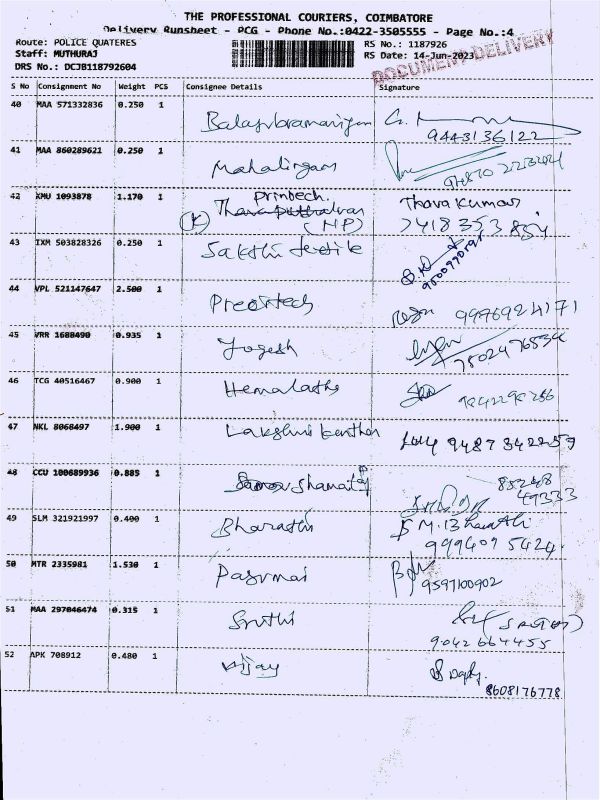 THE PROFESSIONAL COURIERS, COIMBATORE
Delivery Runsheet - PCG - Phone No.:0422-3505555 - Page No.:4
Route: POLICE QUATERES
RS No.: 1187926
Staff: MUTHURAJ
RS Date: 14-Jun-2023
DRS No.: DCJB118792604
DOCUMENT DELIVERY
S No Consignment No Weight PCS Consignee Details Signature
40 MAA 571332836 0.250 1 Balasubramaniyam
9443136122
41 MAA 860289621 0.250 1 Mahalingam
42 KMU 1093878 1.170 1 Printech Thavakumar
(K) (NP) 7418353854
43 IXM 503828326 0.250 1 Sakthi textile
9500990591
44 VPL 521147647 2.500 1 Precitech
9976924171
45 VRR 1688490 0.935 1 Yogesh
7502476534
46 TCG 40516467 0.900 1 Hemalatha
47 NKL 8068497 1.900 1 Lakshmi kanthan
9487342259
48 CCU 100689936 0.885 1
85248
49333
49 SLM 321921997 0.400 1 Bharathi M. Bharathi
9994095424
50 MTR 2335981 1.530 1 Pasumai
9597100902
51 MAA 297046474 0.315 1 Sruthi
9042664455
52 APK 708912 0.480 1 Vijay
8608176778